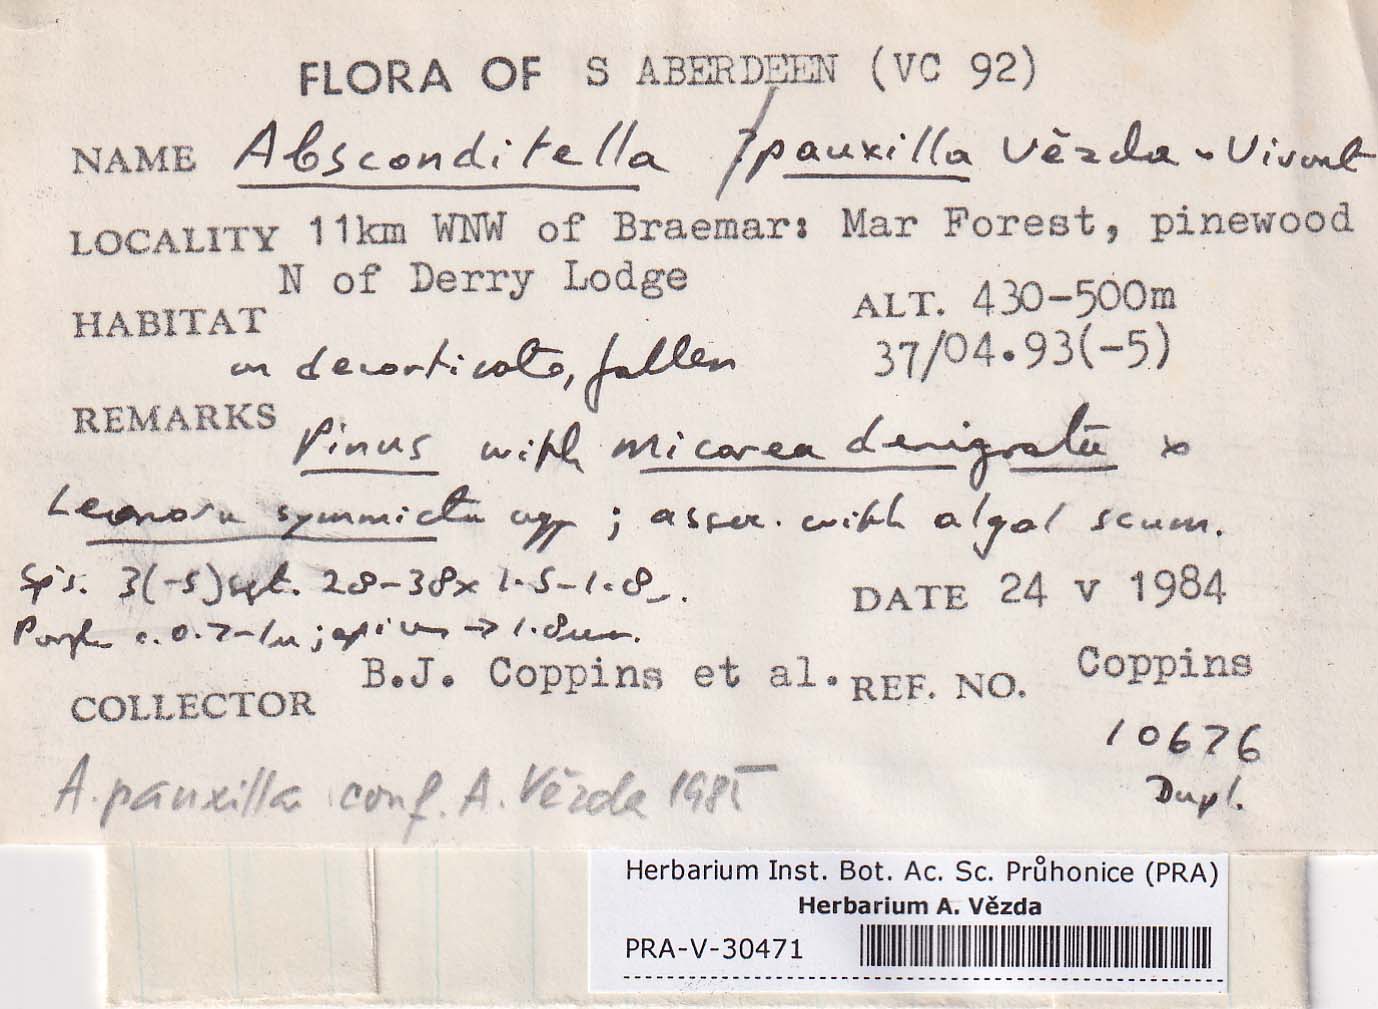 FLORA OF S ABERDEEN (VC 92)
NAME Absconditella ?pauxilla Vězda & Vivant
LOCALITY 11km WNW of Braemar: Mar Forest, pinewood
N of Derry Lodge
HABITAT ALT. 430-500m
37/04.93(-5)
on decorticate, fallen
REMARKS Pinus with Micarea denigrata &
Lecanora symmicta agg ; assoc. with algal scum.
Sp's. 3(-5)sept. 28-38x 1.5-1.8
DATE 24 v 1984
c. 0.7-1µ ; apices → 1.8µm.
COLLECTOR B.J. Coppins et al. REF. NO. Coppins
10676
Dupl.
A. pauxilla conf. A. Vězda 1985
Herbarium Inst. Bot. Ac. Sc. Průhonice (PRA)
Herbarium A. Vězda
PRA-V-30471